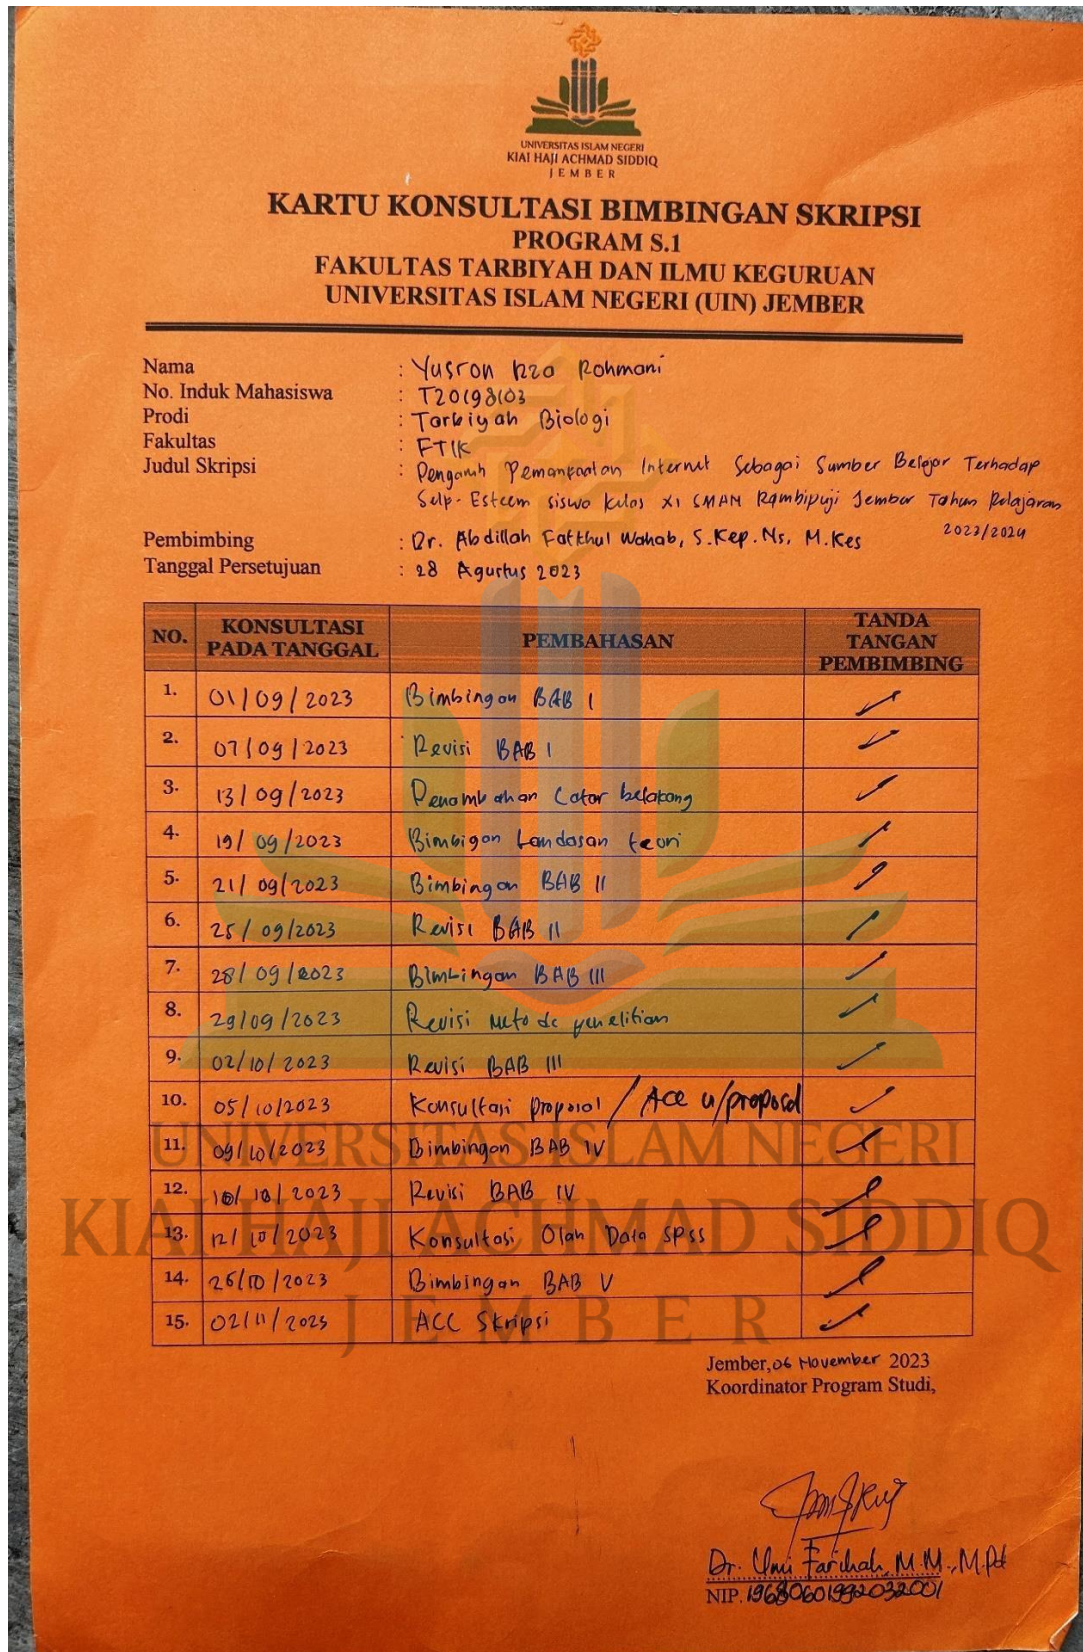 UNIVERSITAS ISLAM NEGERI
KIAI HAJI ACHMAD SIDDIQ
JEMBER
KARTU KONSULTASI BIMBINGAN SKRIPSI
PROGRAM S.1
FAKULTAS TARBIYAH DAN ILMU KEGURUAN
UNIVERSITAS ISLAM NEGERI (UIN) JEMBER
Nama : Yusron Rohmani
No. Induk Mahasiswa : T20198103
Prodi : Tarbiyah Biologi
Fakultas : FTIK
Judul Skripsi : Pengaruh Pemanfaatan Internet Sebagai Sumber Belajar Terhadap
Self-Esteem siswa kelas XI SMAN Rambipuji Jember Tahun Pelajaran
2023/2024
Pembimbing : Dr. Abdillah Fatkhul Wahab, S.Kep.Ns, M.Kes
Tanggal Persetujuan : 28 Agustus 2023
NO. KONSULTASI PADA TANGGAL PEMBAHASAN TANDA TANGAN PEMBIMBING
1. 01/09/2023 Bimbingan BAB I
2. 07/09/2023 Revisi BAB I
3. 13/09/2023 Penambahan Latar belakang
4. 19/09/2023 Bimbigan Landasan teori
5. 21/09/2023 Bimbingan BAB II
6. 25/09/2023 Revisi BAB II
7. 28/09/2023 Bimbingan BAB III
8. 29/09/2023 Revisi Metode penelitian
9. 02/10/2023 Revisi BAB III
10. 05/10/2023 Konsultasi proposal / Acc u/proposal
11. 09/10/2023 Bimbingan BAB IV
12. 10/10/2023 Revisi BAB IV
13. 12/10/2023 Konsultasi Olah Data SPSS
14. 26/10/2023 Bimbingan BAB V
15. 02/11/2023 ACC Skripsi
UNIVERSITAS ISLAM NEGERI
KIAI HAJI ACHMAD SIDDIQ
JEMBER
Jember, 06 November 2023
Koordinator Program Studi,
Dr. Umi Farihah, M.M., M.Pd
NIP. 196806011992032001